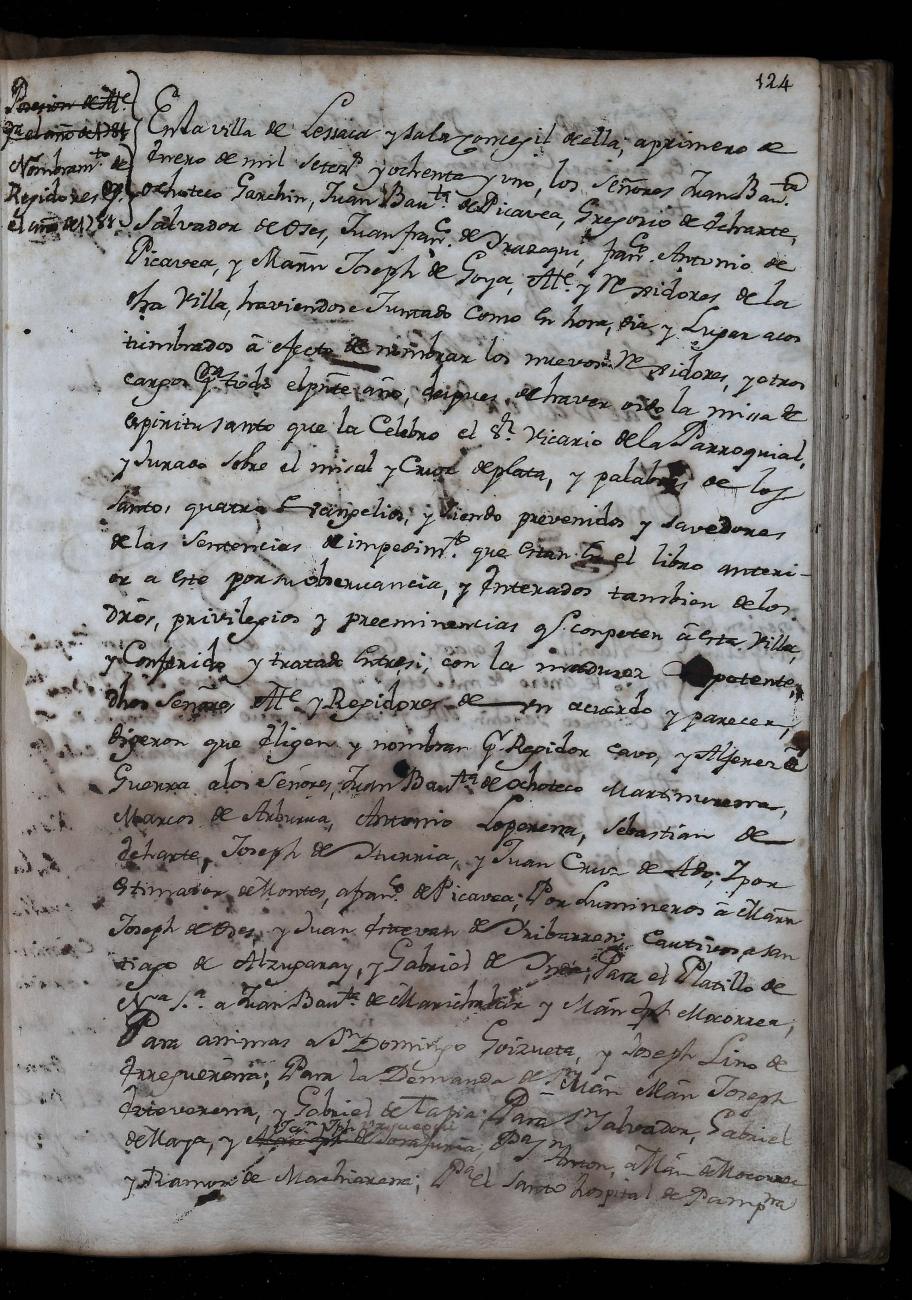 124
Posesion de Alc.e
pa el año de 1781
Nombram.to de
Regidores pa.
el año de 1781
En la villa de Lessaca y sala conzegil de ella, a primero de
Enero de mil setez.s y ochenta y uno, los Señores Juan Bau.ta
Ochoteco Garchin, Juan Bau.ta de Picavea, Gregorio de Echarte,
Salvador de Oses, Juan fran.co de Yrazoqui, fran.co Antonio de
Picavea, y Marn Joseph de Goya, Alc.e y Rexidores de la
dha Villa, haviendose Juntado como en hora, dia y Lugar acos
tumbrados â efecto de nombrar los nuevos Rexidores, y otros
cargos pa todo el pnte año, despues de haver oido la missa de
espiritu santo que la Celebro el S.r Vicario de la Parroquial,
y Jurado sobre el misal y Cruz de plata, y palabras de los
santos quatro Evangelios, y siendo prevenidos y savedores
de las Sentencias de impedim.to que estan en el libro anteri-
or a este por su observancia, y Enterados tambien de los
dros, privilegios y preeminencias q.e conpeten â esta Villa,
y Conferido y tratado entre si, con la madurez competente,
dhos Señores Alc.e y Regidores de un acuerdo y parecer,
digeron que Eligen y nombran pr Regidor cavo, y Alferez de
Guerra a los Señores, Juan Bau.ta de Ochoteco Martimurena,
Marcos de Arburua, Antonio Loperena, Sebastian de
Echarte, Joseph de Yturria, y Juan Cruz de Ado; Y por
Estimador de Montes, a fran.co de Picavea: Por Lumineros â Marn
Joseph de Oses, y Juan Estevan de Yribarren; Cautivos a san
tiago de Alzugaray, y Gabriel de Para el Platillo de
Nra S.ra a Juan Bau.ta de Marichalar y Mãn Jph Mocorrea;
Para animas a Dn Domingo Goizueta, y Joseph Lino de
Yrregueréna; Para la Demanda de Sn Mãn Mãn Joseph
Esteverena, y Gabriel de Tapia; Para Sn Salvador, Gabriel
de Maya, y Pa Sn Anton, a Mãn de Mocorrea
y Ramon de Machiarena; Pa el santo hospital de Pampna